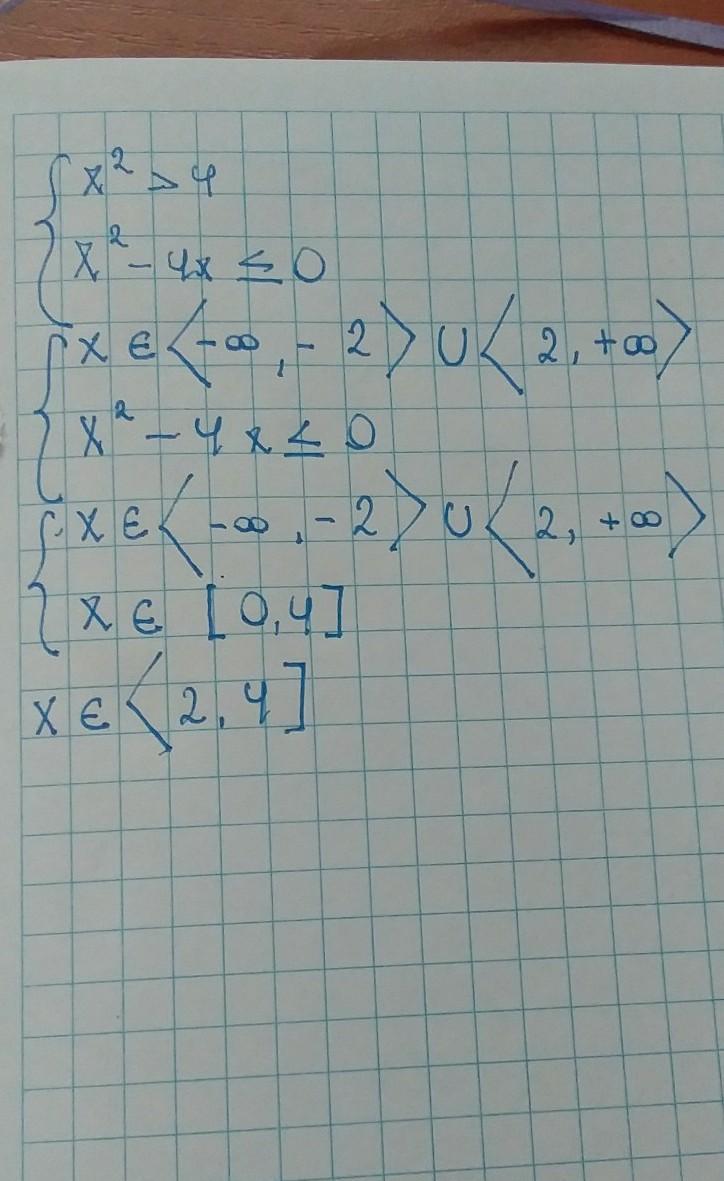 { x² > 4
x² - 4x ≤ 0
{ x ∈ ⟨-∞, -2⟩ ∪ ⟨2, +∞⟩
x² - 4x ≤ 0
{ x ∈ ⟨-∞, -2⟩ ∪ ⟨2, +∞⟩
x ∈ [0,4]
x ∈ ⟨2,4]